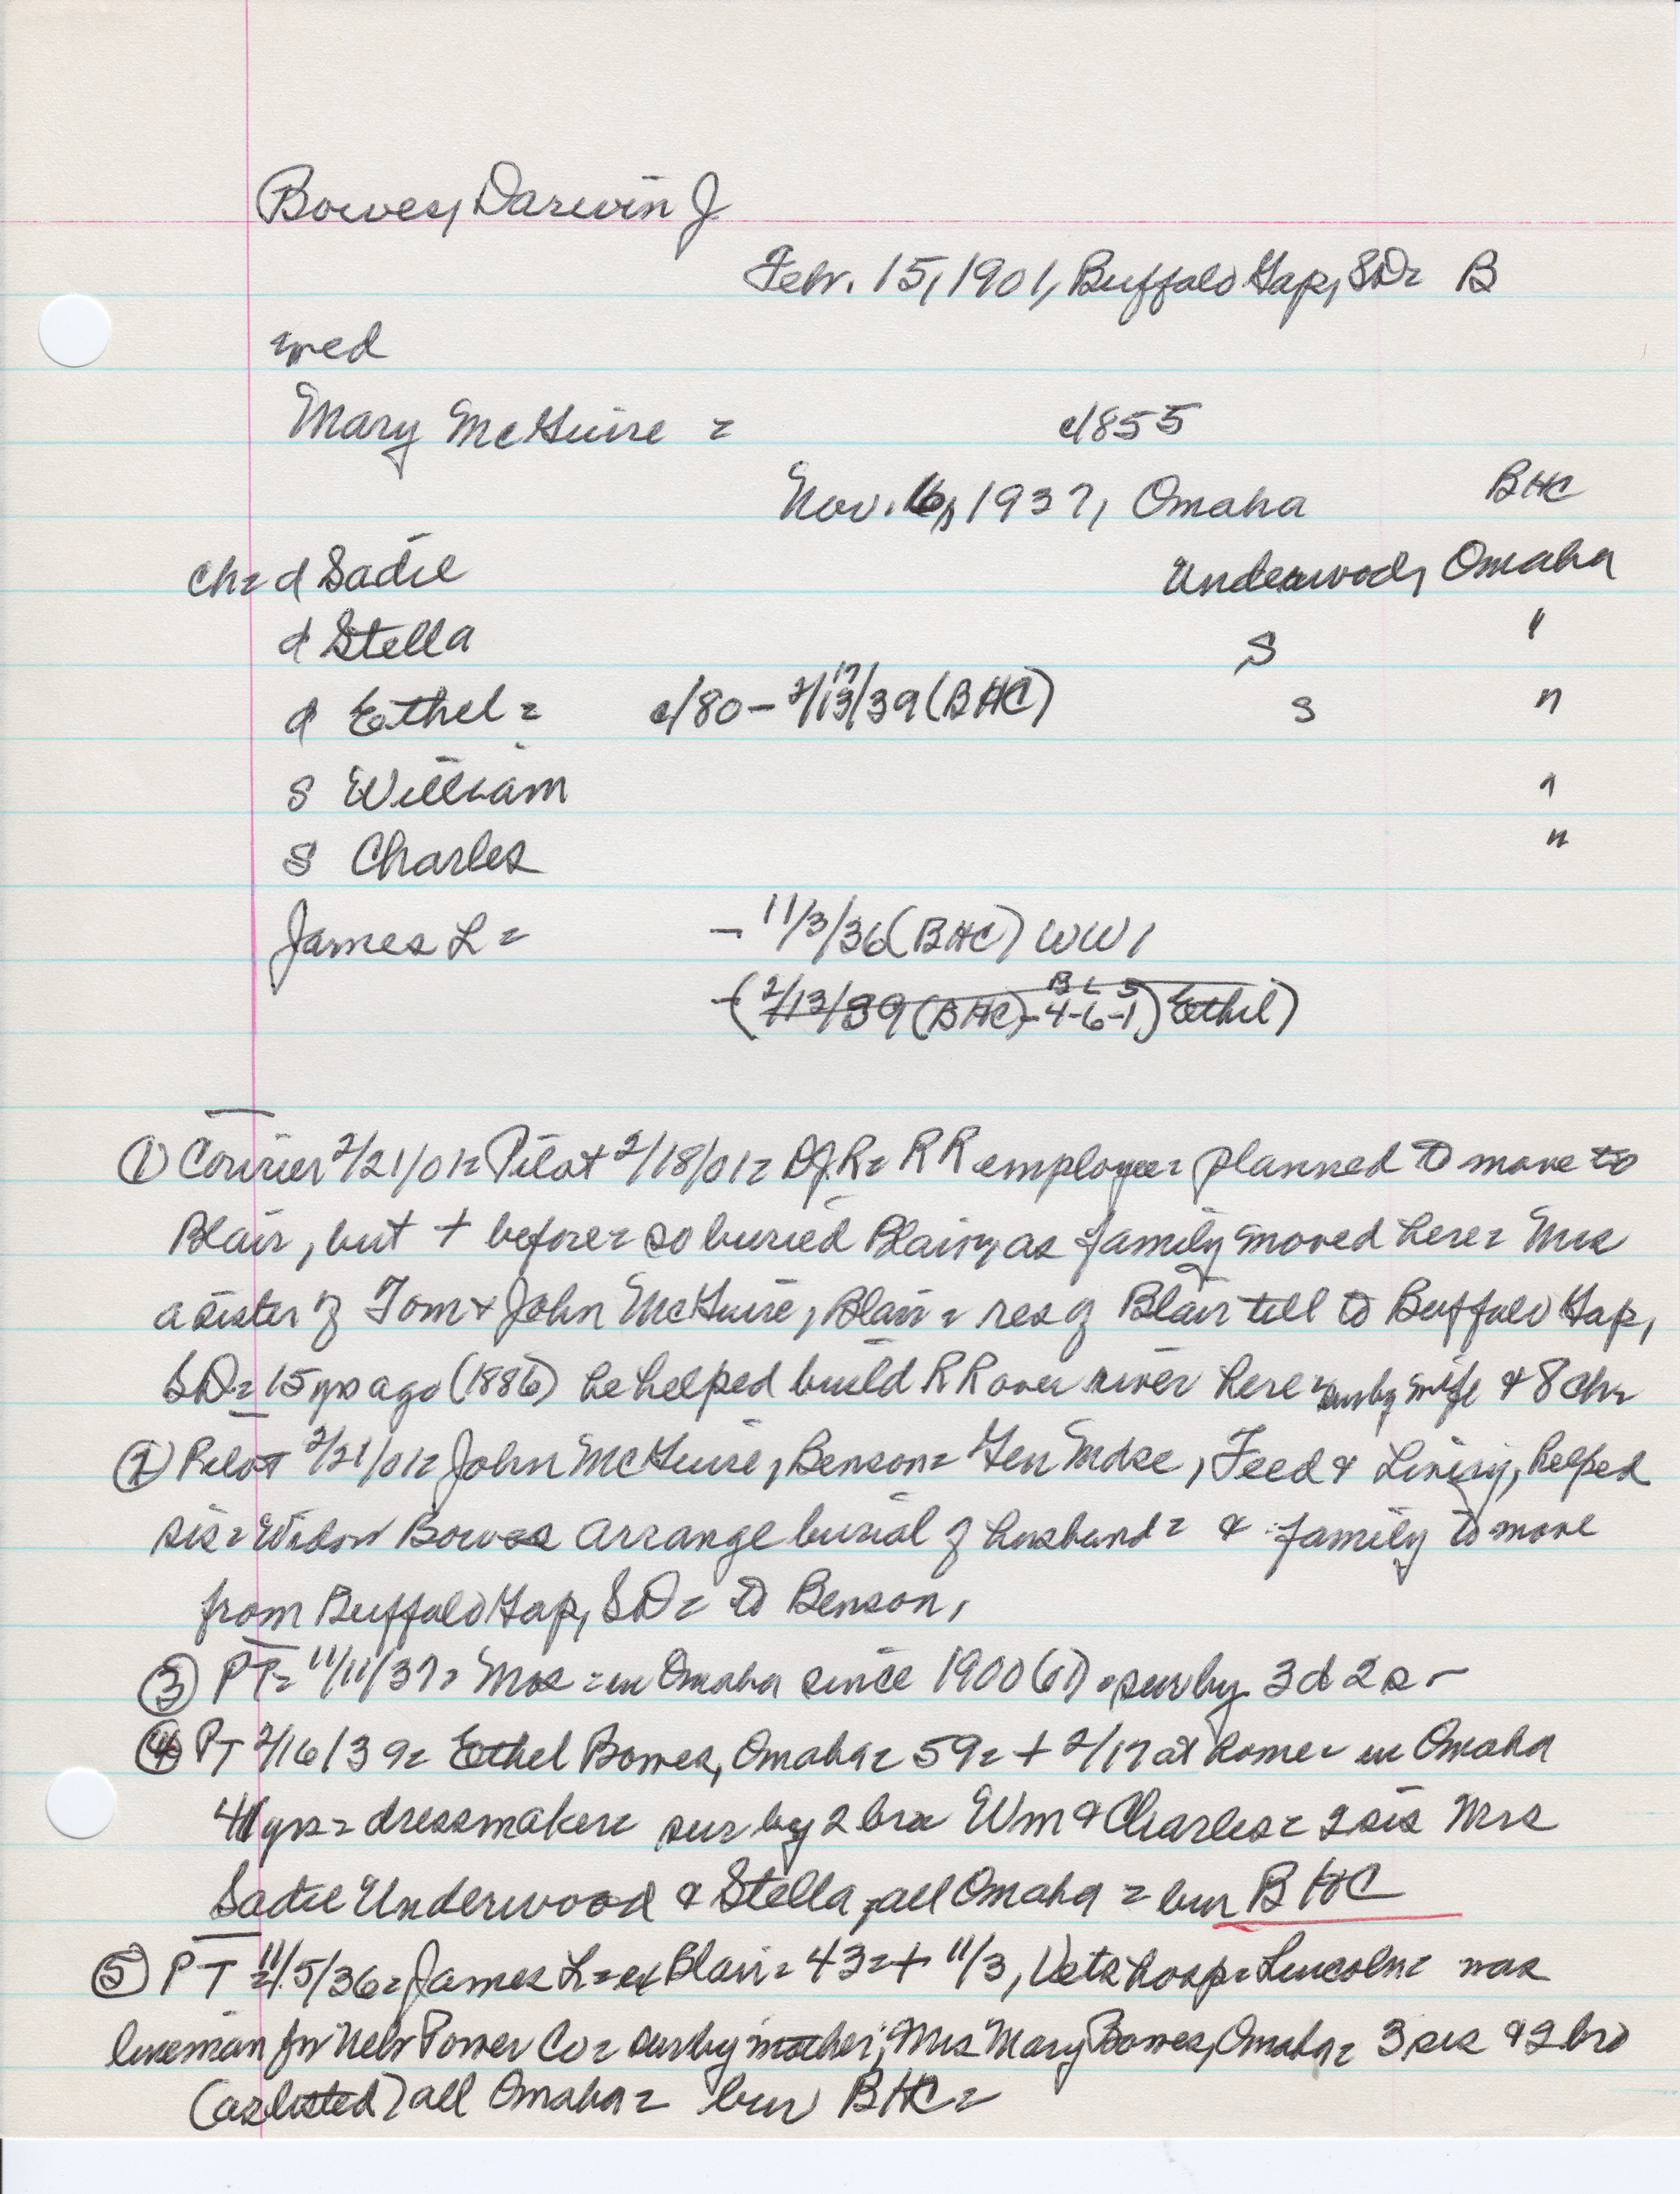 Bowes, Darwin J
Febr. 15, 1901, Buffalo Gap, SD= B
med
Mary McGuire = c/855
Nov. 6, 1937, Omaha BHC
ch= d Sadie Underwood, Omaha
d Stella S "
d Ethel = c/80 - 2/13/39 (BHC) S "
17
s William "
s Charles "
James L = - 11/3/36 (BHC) WW1
B L S
- (2/13/39 (BHC) - 4-6-1) Ethel)
① Courier 2/21/01= Pilot 2/18/01= DJR= RR employee= planned to move to
Blair, but + before= so buried Blair, as family moved here= Mrs
a sister of Tom & John McGuire, Blair= res of Blair till to Buffalo Gap,
SD= 15 yrs ago (1886) he helped build RR over river here= sur by wife & 8 ch=
② Pilot 2/21/01= John McGuire, Benson= Gen Mdse, Feed & Livery, helped
sis= Widow Bowes arrange burial of husband= & family to move
from Buffalo Gap, SD= to Benson,
③ PT= 11/11/37= Mrs = in Omaha since 1900 (01) = sur by 3 d 2 s -
④ PT 2/16/39= Ethel Bowes, Omaha= 59= + 2/17 at home= in Omaha
41 yrs= dressmaker= sur by 2 bro Wm & Charles= 2 sis Mrs
Sadie Underwood & Stella, all Omaha = bur BHC
⑤ PT 11/5/36= James L= ex Blair= 43= + 11/3, Vets hosp= Lincoln= was
lineman for Nebr Power Co= sur by mother, Mrs Mary Bowes, Omaha= 3 sis & 2 bro
(as listed) all Omaha= bur BHC=